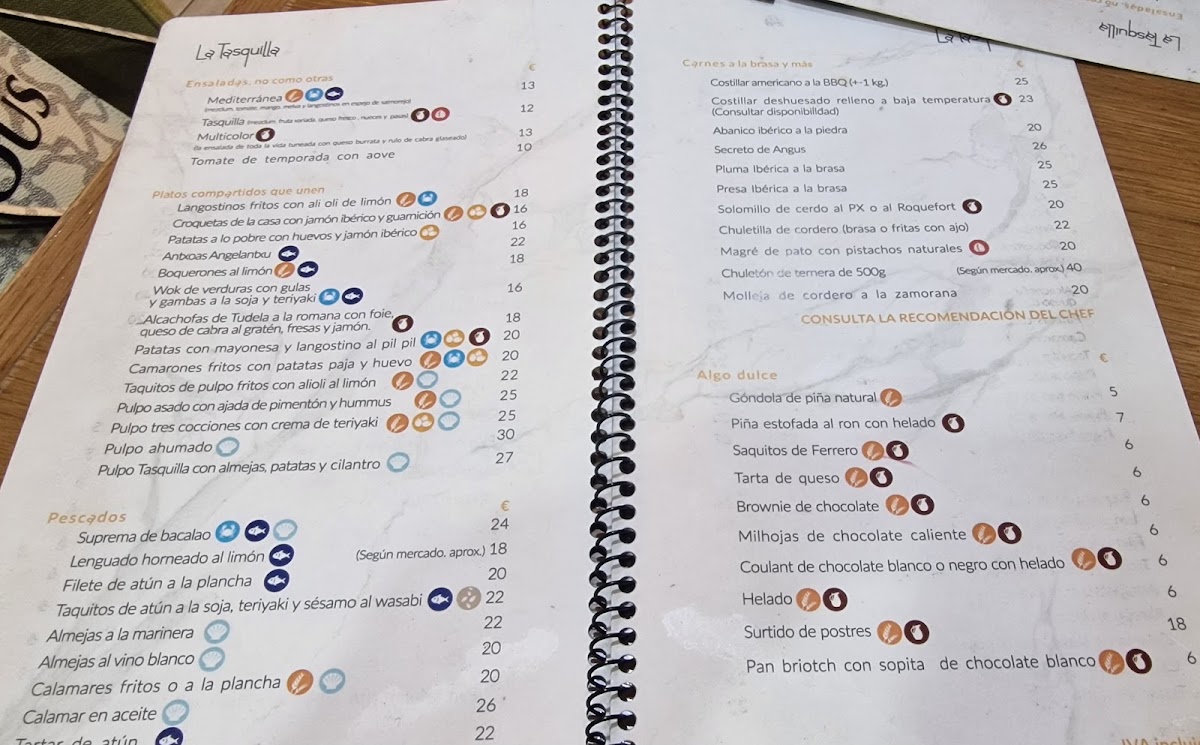 La Tasquilla
€
Ensaladas, no como otras
Mediterránea 13
(mezclum, tomate, mango, melva y langostinos en espejo de salmorejo)
Tasquilla (mezclum, fruta variada, queso fresco, nueces y pasas) 12
Multicolor 13
(la ensalada de toda la vida tuneada con queso burrata y rulo de cabra glaseado)
Tomate de temporada con aove 10
Platos compartidos que unen
Langostinos fritos con ali oli de limón 18
Croquetas de la casa con jamón ibérico y guarnición 16
Patatas a lo pobre con huevos y jamón ibérico 16
Antxoas Angelantxu 22
Boquerones al limón 18
Wok de verduras con gulas
y gambas a la soja y teriyaki 16
Alcachofas de Tudela a la romana con foie,
queso de cabra al gratén, fresas y jamón. 18
Patatas con mayonesa y langostino al pil pil 20
Camarones fritos con patatas paja y huevo 20
Taquitos de pulpo fritos con alioli al limón 22
Pulpo asado con ajada de pimentón y hummus 25
Pulpo tres cocciones con crema de teriyaki 25
Pulpo ahumado 30
Pulpo Tasquilla con almejas, patatas y cilantro 27
Pescados €
Suprema de bacalao 24
Lenguado horneado al limón (Según mercado, aprox.) 18
Filete de atún a la plancha 20
Taquitos de atún a la soja, teriyaki y sésamo al wasabi 22
Almejas a la marinera 22
Almejas al vino blanco 20
Calamares fritos o a la plancha 20
Calamar en aceite 26
Tartar de atún 22
Carnes a la brasa y más €
Costillar americano a la BBQ (+-1 kg.) 25
Costillar deshuesado relleno a baja temperatura 23
(Consultar disponibilidad)
Abanico ibérico a la piedra 20
Secreto de Angus 26
Pluma Ibérica a la brasa 25
Presa Ibérica a la brasa 25
Solomillo de cerdo al PX o al Roquefort 20
Chuletilla de cordero (brasa o fritas con ajo) 22
Magré de pato con pistachos naturales 20
Chuletón de ternera de 500g (Según mercado, aprox.) 40
Molleja de cordero a la zamorana 20
CONSULTA LA RECOMENDACIÓN DEL CHEF
Algo dulce €
Góndola de piña natural 5
Piña estofada al ron con helado 7
Saquitos de Ferrero 6
Tarta de queso 6
Brownie de chocolate 6
Milhojas de chocolate caliente 6
Coulant de chocolate blanco o negro con helado 6
Helado 6
Surtido de postres 18
Pan briotch con sopita de chocolate blanco 6
IVA
La Tasquilla
Ensaladas,